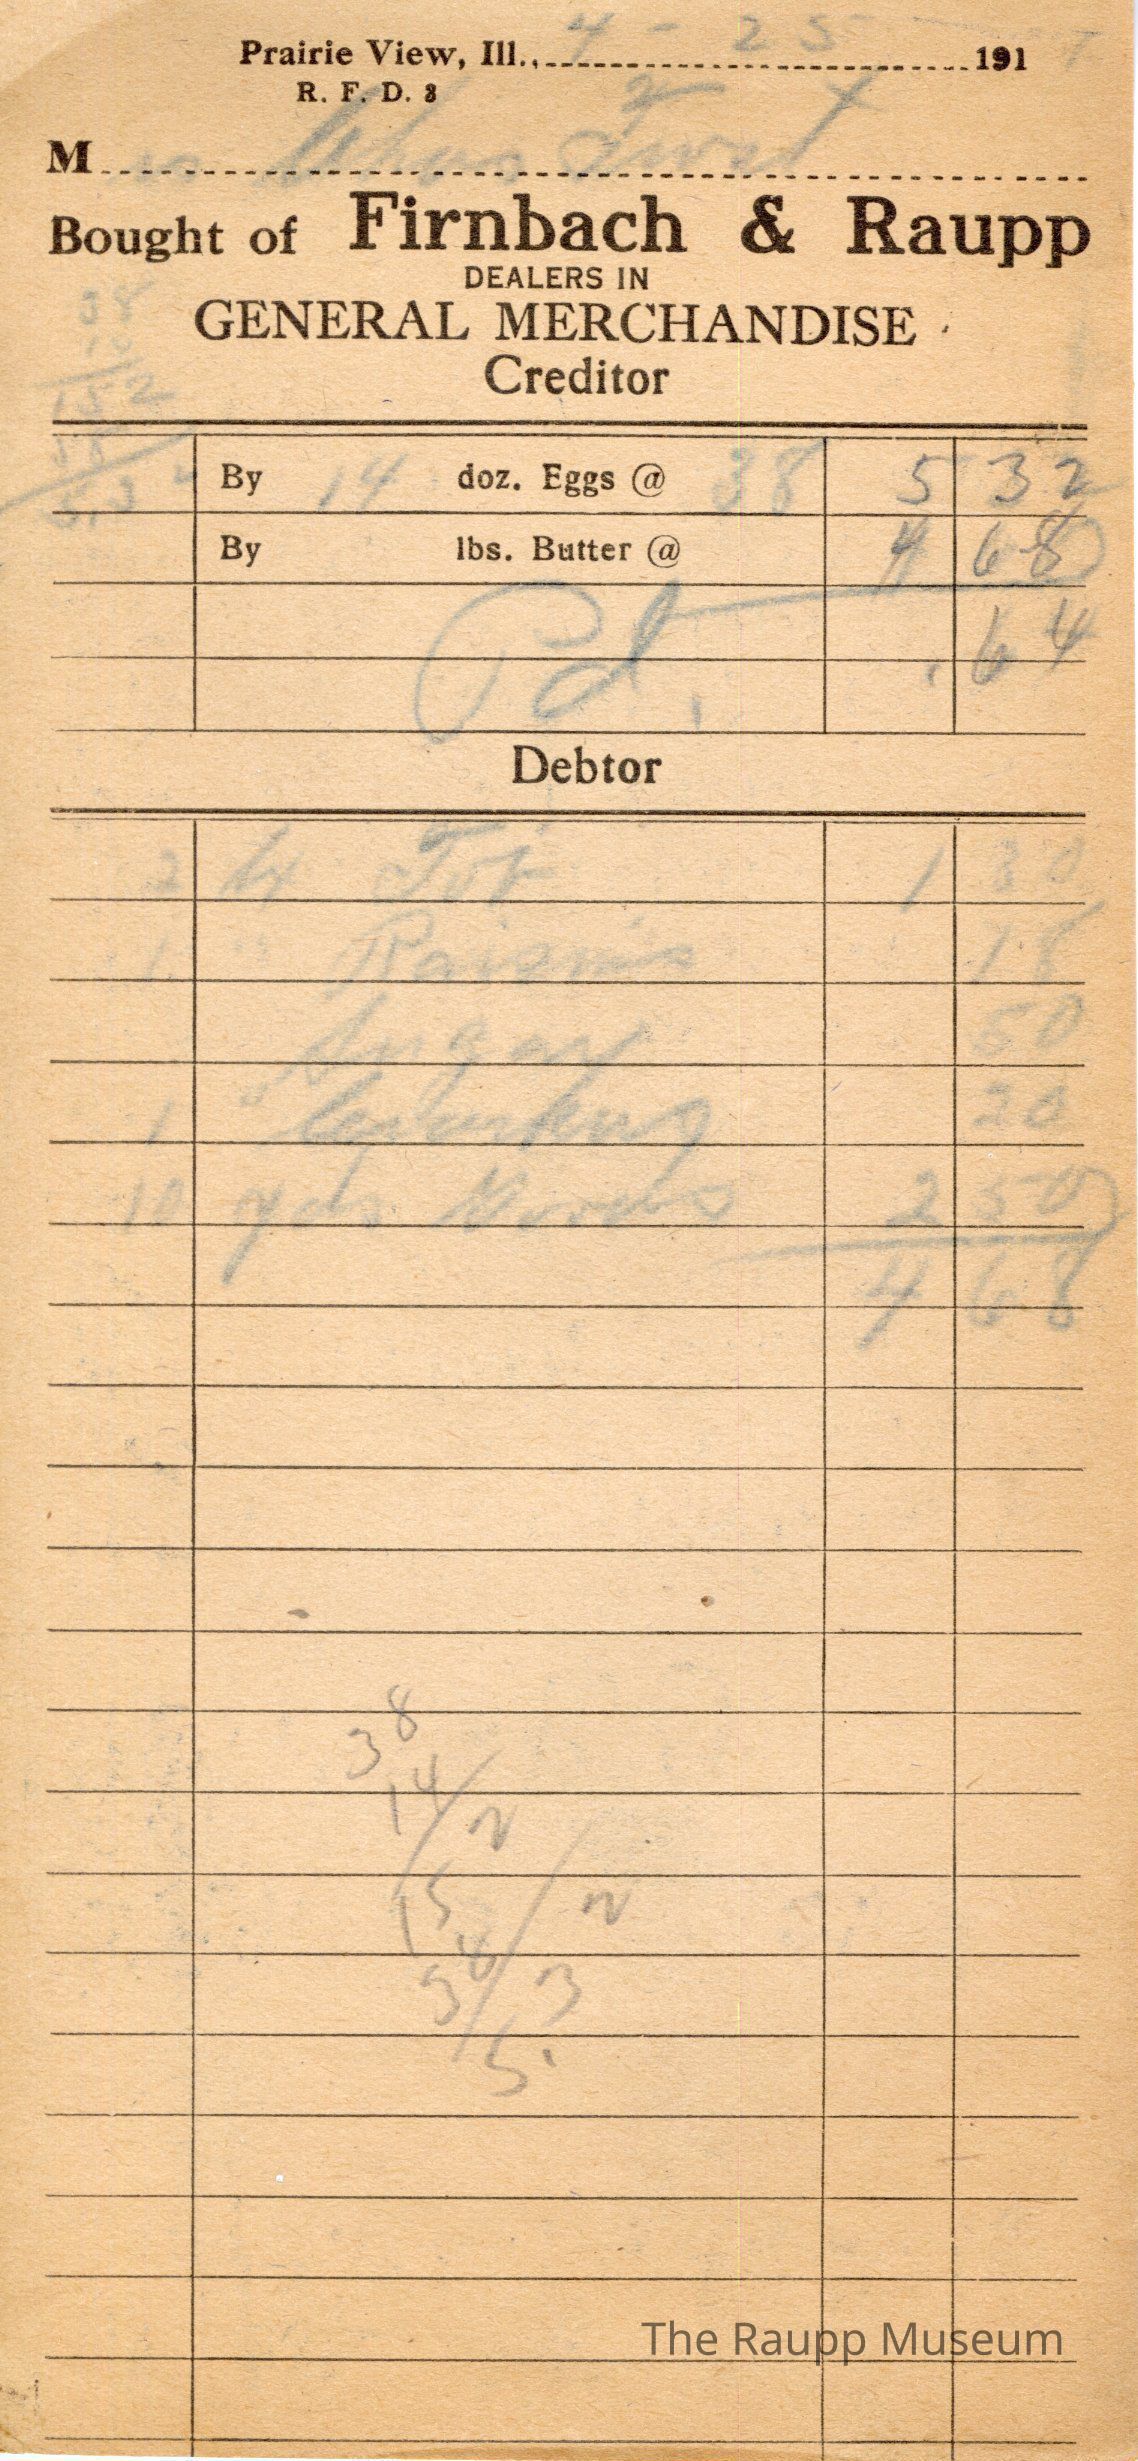 Prairie View, Ill., 4 - 25 1917
R. F. D. 3
Mrs Chas
Bought of Firnbach & Raupp
DEALERS IN
GENERAL MERCHANDISE
Creditor
38
152
38
5.32
By 14 doz. Eggs @ 38 5 32
By lbs. Butter @ 4 68
Pd. .64
Debtor
2 1 30
1 " Raisins 18
Sugar 50
1 20
10 yds Goods 2 50
4 68
38
14
152
38
5.32
The Raupp Museum